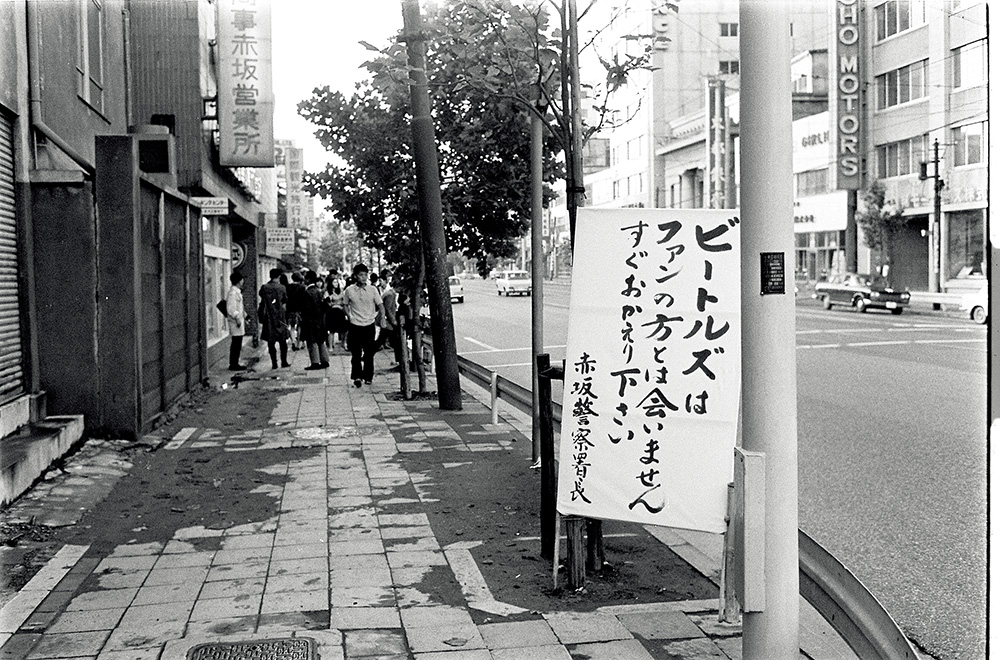 ビートルズは
ファンの方とは会いません
すぐおかえり下さい
赤坂警察署長
事赤坂営業所
HO MOTORS